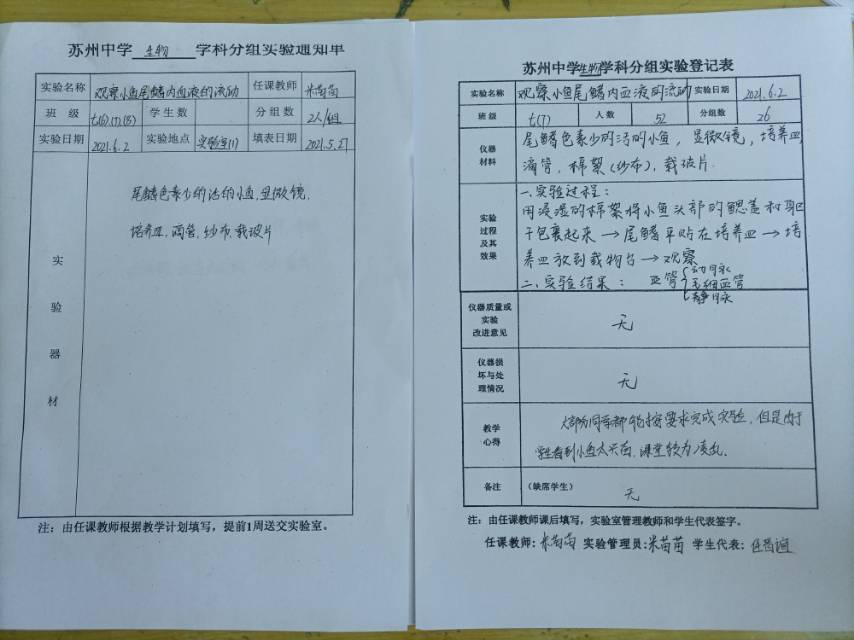 苏州中学 生物 学科分组实验通知单
实验名称 观察小鱼尾鳍内血液的流动 任课教师 米苗苗
班 级 七(6).(7).(8) 学生数 分组数 2人/组
实验日期 2021.6.2 实验地点 实验室(1) 填表日期 2021.5.27
实验器材
尾鳍色素少的活的小鱼,显微镜,
培养皿,滴管,纱布,载玻片
注:由任课教师根据教学计划填写,提前1周送交实验室。
苏州中学生物学科分组实验登记表
实验名称 观察小鱼尾鳍内血液的流动 实验日期 2021.6.2
班 级 七(7) 人 数 52 分组数 26
仪器材料
尾鳍色素少的活的小鱼,显微镜,培养皿
滴管,棉絮(纱布),载玻片.
实验过程及其效果
一.实验过程:
用浸湿的棉絮将小鱼头部的鳃盖和躯
干包裹起来→尾鳍平贴在培养皿→培
养皿放到载物台→观察
二.实验结果: 血管 动脉
毛细血管
静脉
仪器质量或实验改进意见
无
仪器损坏与处理情况
无
教学心得
大部分同学都能按要求完成实验,但是由于
学生看到小鱼太兴奋,课堂较为凌乱.
备注 (缺席学生) 无
注:由任课教师课后填写,实验室管理教师和学生代表签字。
任课教师:米苗苗 实验管理员:米苗苗 学生代表: